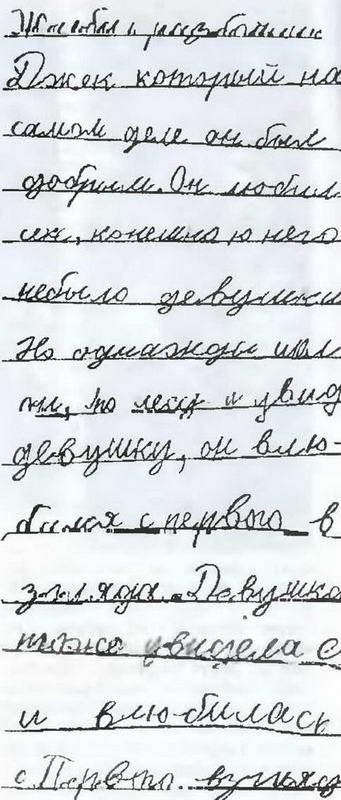 Жил был разбойник
Джек который на
самом деле он был
добрым. Он любил
их, конешно ю него
небыло девушки
Но однажды шол
он, по лесу и увид
девушку, он влю-
бился с первого в
згляда. Девушка
тоже увидела е
и влюбилась
с Первого взгляд